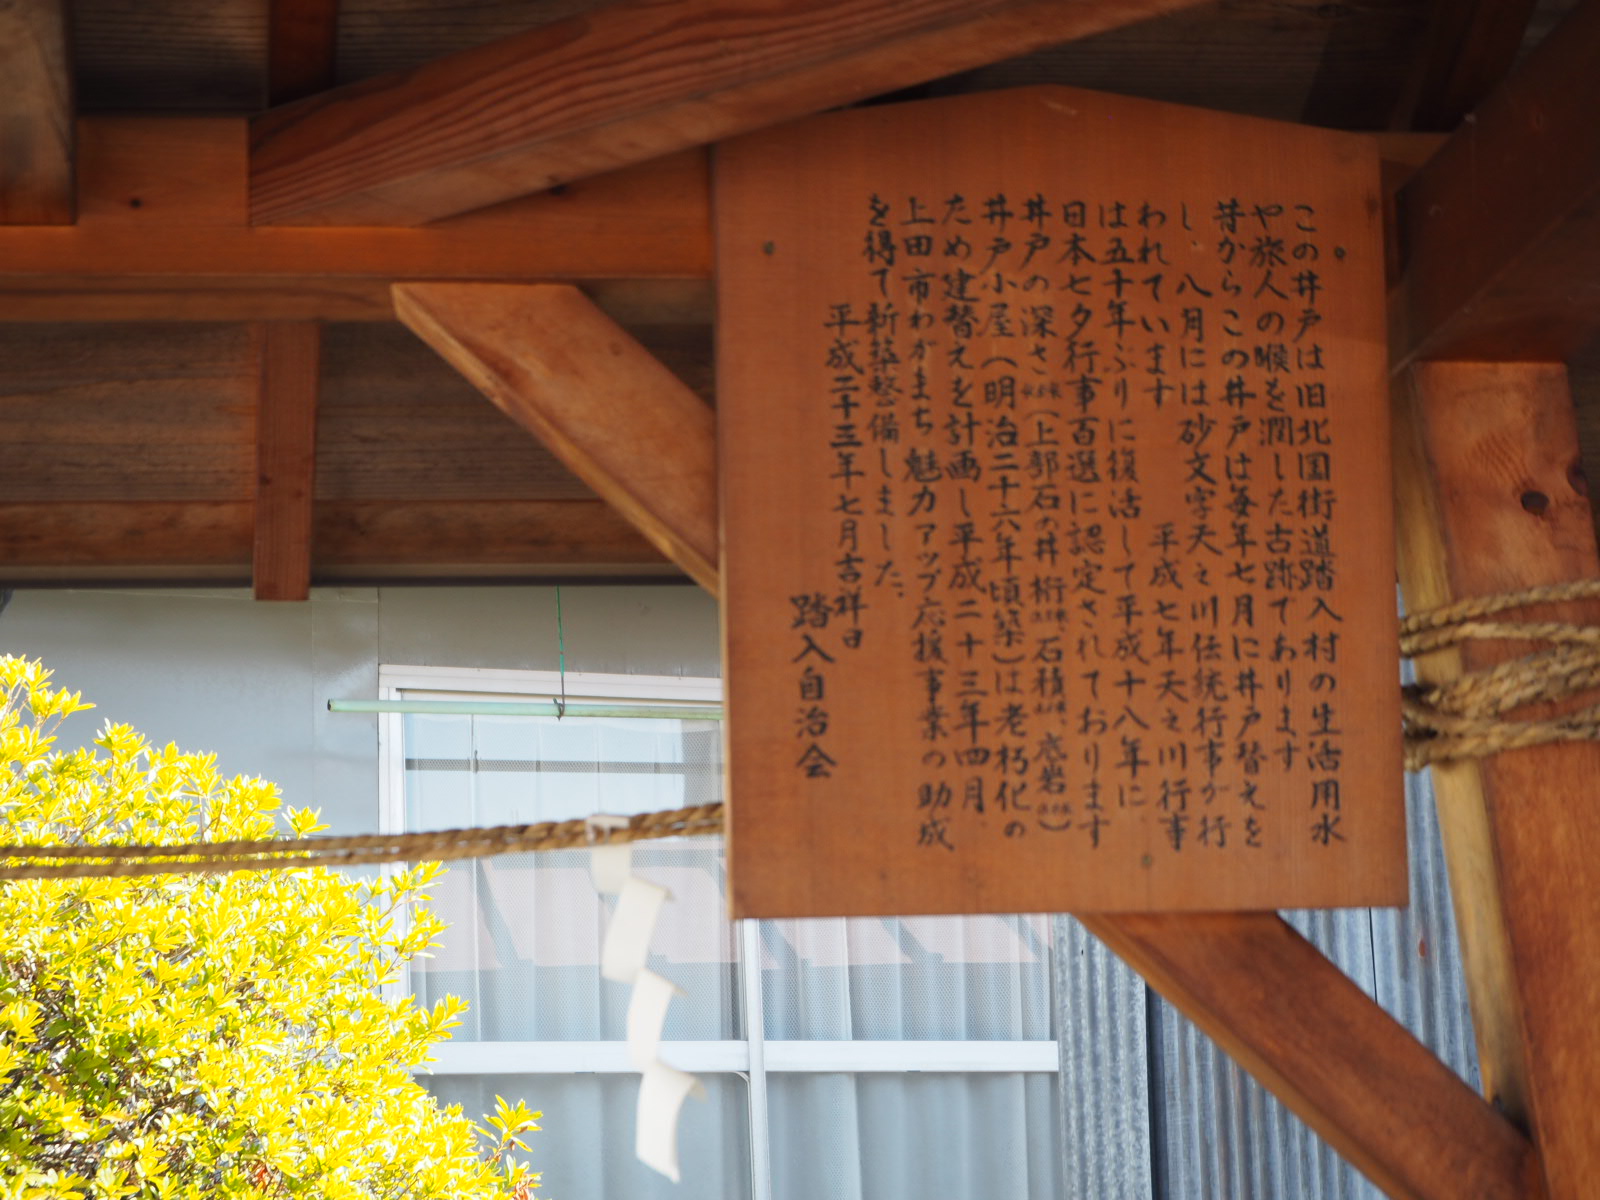 この井戸は旧北国街道踏入村の生活用水
や旅人の喉を潤した古跡であります
昔からこの井戸は毎年七月に井戸替えを
し、八月には砂文字天之川伝統行事が行
われています 平成七年天之川行事
は五十年ぶりに復活して平成十八年に
日本七夕行事百選に認定されております
井戸の深さ(上部石の井桁 石積 底岩)
井戸小屋(明治二十六年頃築)は老朽化の
ため建替えを計画し平成二十三年四月、
上田市わがまち魅力アップ応援事業の助成
を得て新築整備しました。
平成二十三年七月吉祥日
踏入自治会